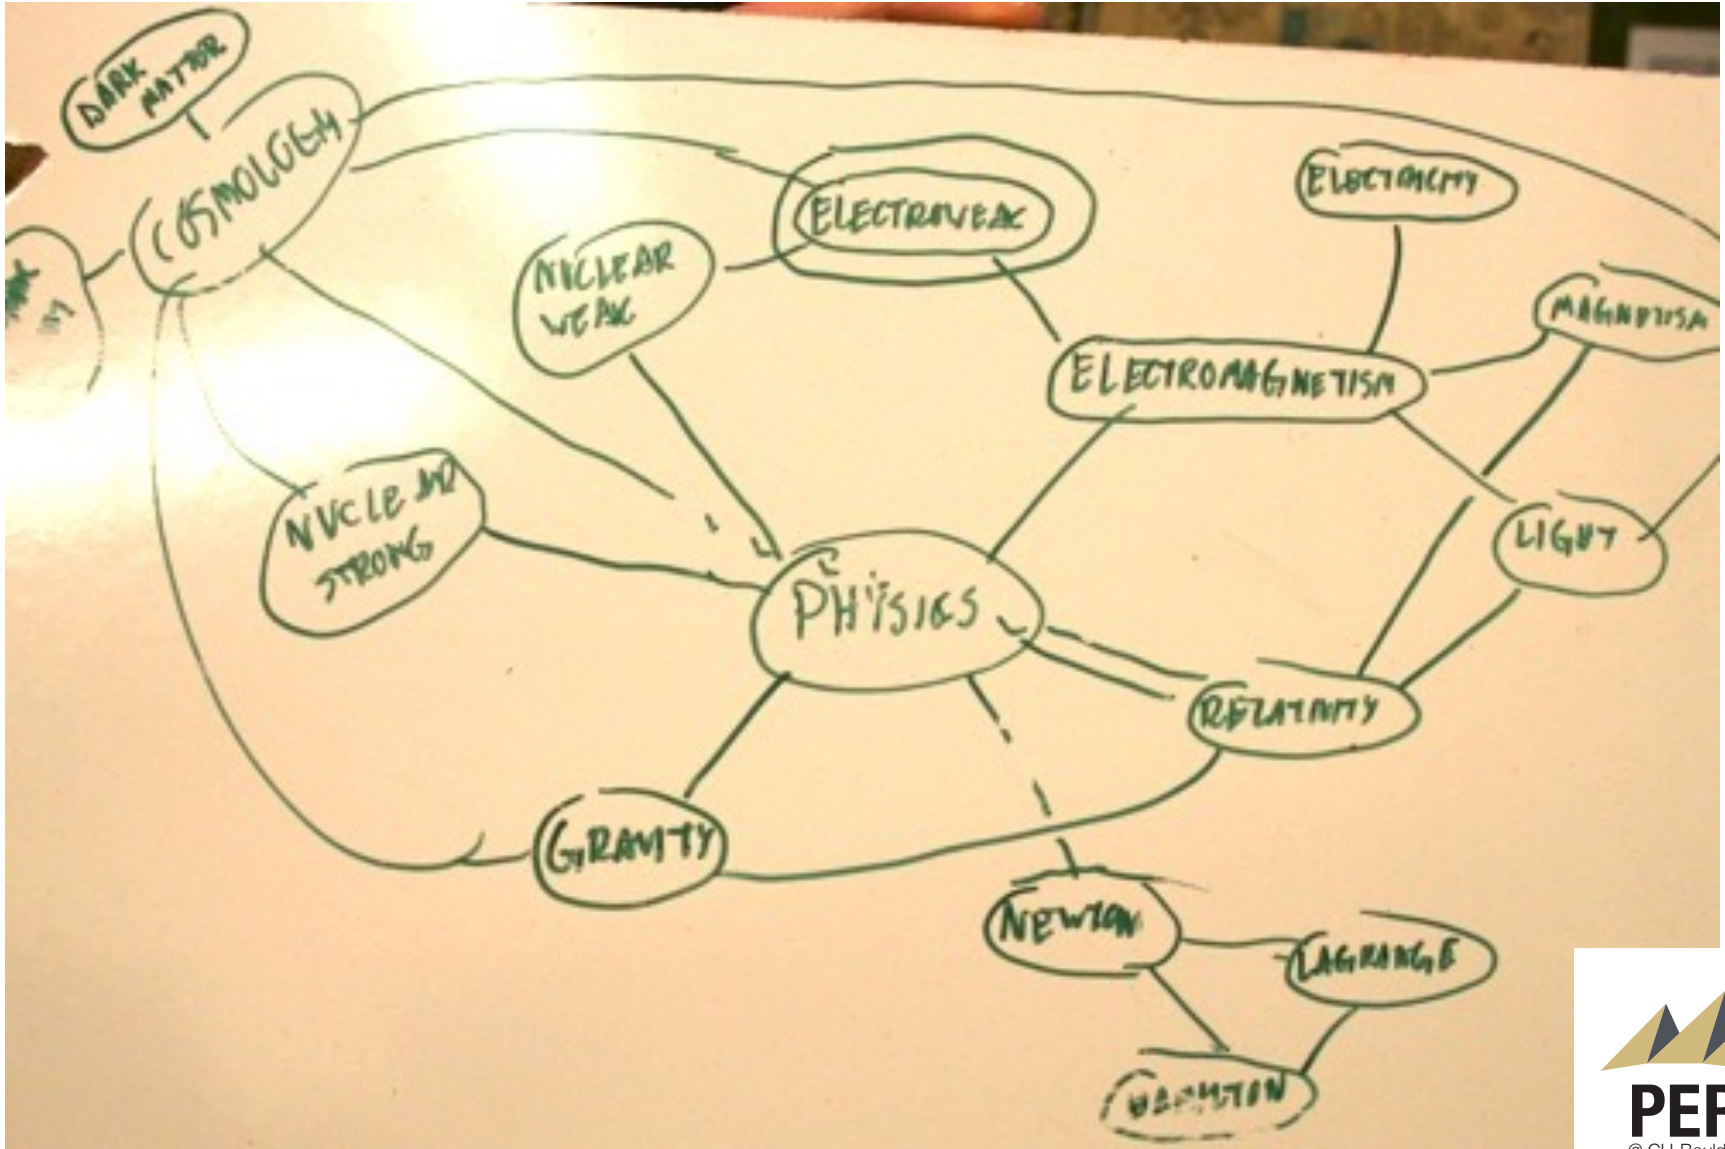 DARK
MATTOR
COSMOLOGEM
ELECTROWEAK
ELECTRICITY
NUCLEAR
WEAK
MAGNETISM
ELECTROMAGNETISM
NUCLEAR
STRONG
LIGHT
PHYSICS
RELATIVITY
GRAVITY
NEWTON
LAGRANGE
HAMILTON
PER
@ CU Bould